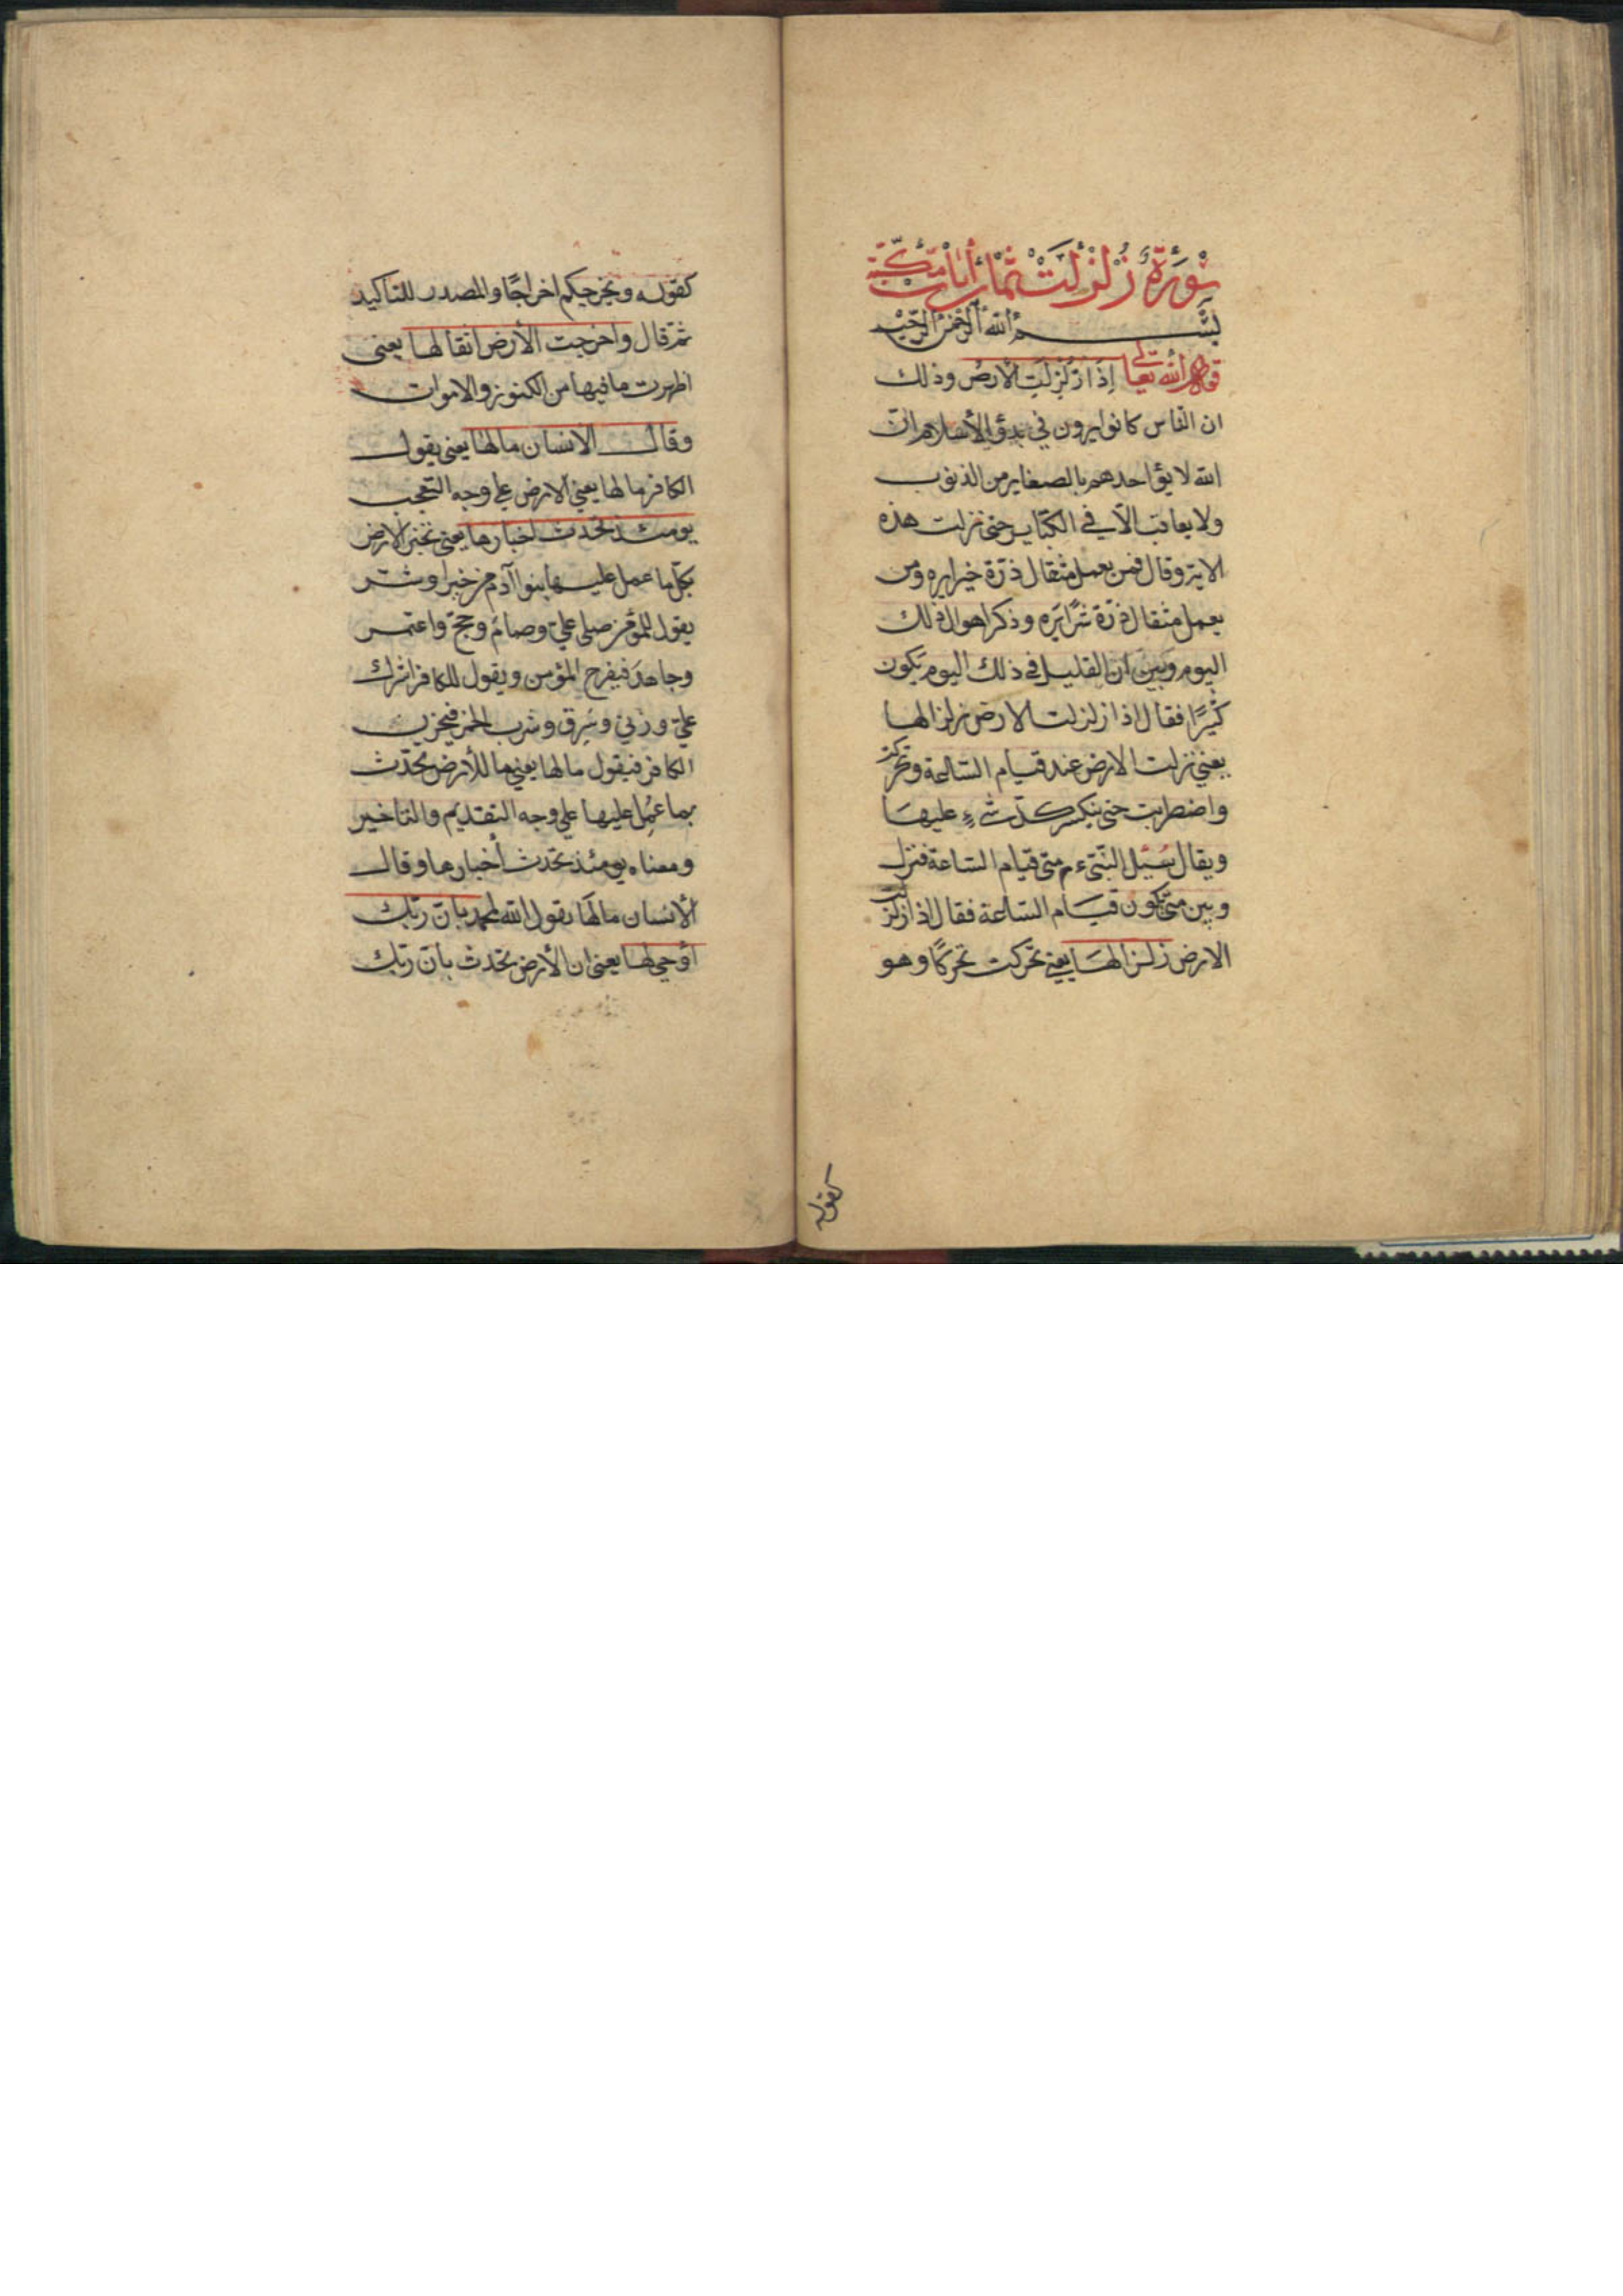 سُورَةُ زُلْزِلَتْ ثمان أيات مكية
بسم الله الرحمن الرحيم
قول الله تعالى إِذَا زُلْزِلَتِ الارضُ وذلك
ان الناس كانوا يرون في بدؤ الأسلام ان
الله لا يؤاخدهم بالصغاير من الذنوب
ولا يعاقب الا في الكبايرحتى نزلت هذه
الاية وقال فمن يعمل مثقال ذرة خيرا يره ومن
يعمل مثقال ذرة شرًا يَره وذكر اهوال ذلك
اليوم وَبين ان القليل في ذلك اليوم يَكون
كثيرًا فقال اذا زلزلت الارض زلزالها
يعني تزلزلت الارض عند قيام الساعة وتحركت
واضطربت حتى ينكسر كل شيءٍ عليها
ويقال سُئِل النبيء م متى قيام الساعة فنزل
وبين متى تكون قيام الساعة فقال اذا زلزلت
الارض زلزالهَا يعني تحركت تحركًا وهو
كقوله
كقوله ويخرجكم اخراجًا والمصدر للتاكيد
ثم قال واخرجت الأرض اثقالها يعنى
اظهرت ما فيها من الكنوز والاموات
وقال الانسان مالها يعنى يقول
الكافر مالها يعني الارض على وجه التعجب
يومئذ تحدث اخبارها يعنى تخبر الارض
بكل ما عمل عليها بنوا آدم من خير او شر
يقول للمؤمن صلى علي وصام وحج واعتمر
وجاهدَ فيفرح المؤمن ويقول للكافر اشرك
علي وزني وسَرق وشرب الخمر فيحزن
الكافر فيقول مالها يعني ما للأرض تحدّث
بما عُمِل عليها على وجه التقديم والتاخير
ومعناه يومئذ تحدث أخبارها وقال
الأنسان مالَها يقول الله لمحمد بان ربّك
أوحي لها يعنى ان الأرض تحدث بان ربّك